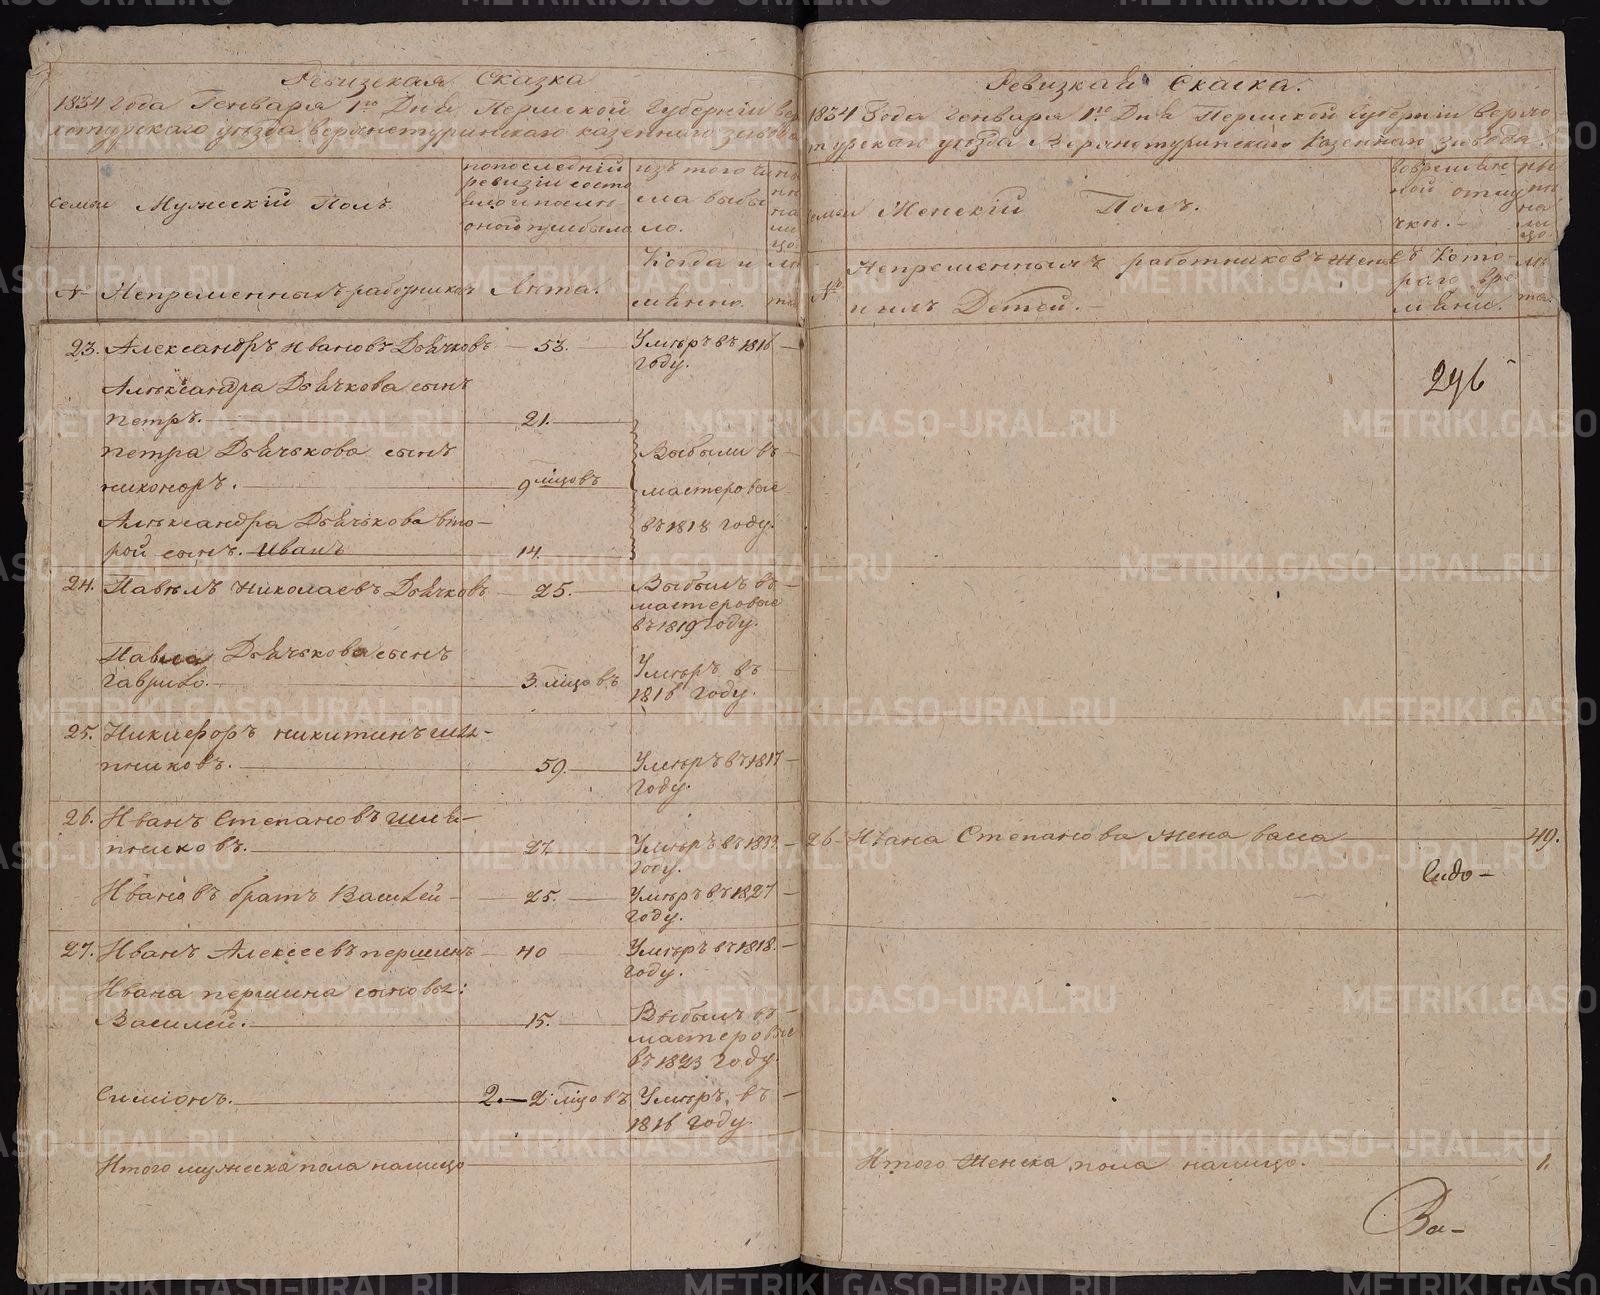 Ревизская Сказка
1834 года Генваря 1го Дня Пермской Губернии Вер
хотурскаго уезда верхнетуринскаго казеннаго завода
семьи
Мужескій Полъ.
попоследней
ревизіи состо
яло и после
оной прибыло
изъ того чи
сла выбы
ло.
ны
не
на
ли
цо.
№
Непременныхъ работников
Лета.
Когда и
менно
ле
та
23. Александръ Ивановъ Дьячковъ 53. Умеръ въ 1816
году.
Александра Дьячкова сынъ
петръ. 21.
петра Дьячькова сынъ Выбыли въ
никоноръ. 9 мцовъ мастеровые
Александра Дьячькова вто-
рой сынъ. Иванъ 14. въ 1818 году.
24. Павелъ Николаевъ Дьячковъ 25. Выбылъ въ
мастеровые
въ 1819 году.
Павла Дьячькова сынъ Умеръ въ
гаврило. 3. мцовъ 1816 году.
25. Никифоръ никитинъ шля-
пниковъ. 59. Умеръ въ 1817
году.
26. Иванъ Степановъ шля-
пниковъ. 27. Умеръ въ 1833
году.
Ивановъ братъ Василей 25. Умеръ въ 1827
году.
27. Иванъ Алексеевъ першинъ 40 Умеръ въ 1818.
году.
Ивана першина сыновья:
Василей. 15. Выбылъ въ
мастеровые
въ 1823 году
Симіонъ. 2.—2 мцовъ Умеръ, въ
1816 году
Итого мужеска пола налицо
Ревизкая Скаска.
1834 Года Генваря 1го Дня Пермской Губерніи Верхо
турскаго уезда Верхнотуринскаго Казеннаго завода.
семьи
Женскій Полъ.
вовремен
ной отлу
чке.
ны
не
на
ли
цо.
№
Непременныхъ работниковъ жены
и ихъ Детей.
съ кото-
раго вре
мени.
ле
та.
296
26 Ивана Степанова жена васа 49.
Сидо-
Итого Женска пола налицо. 1.
Ва-
METRIKI.GASO-URAL.RU